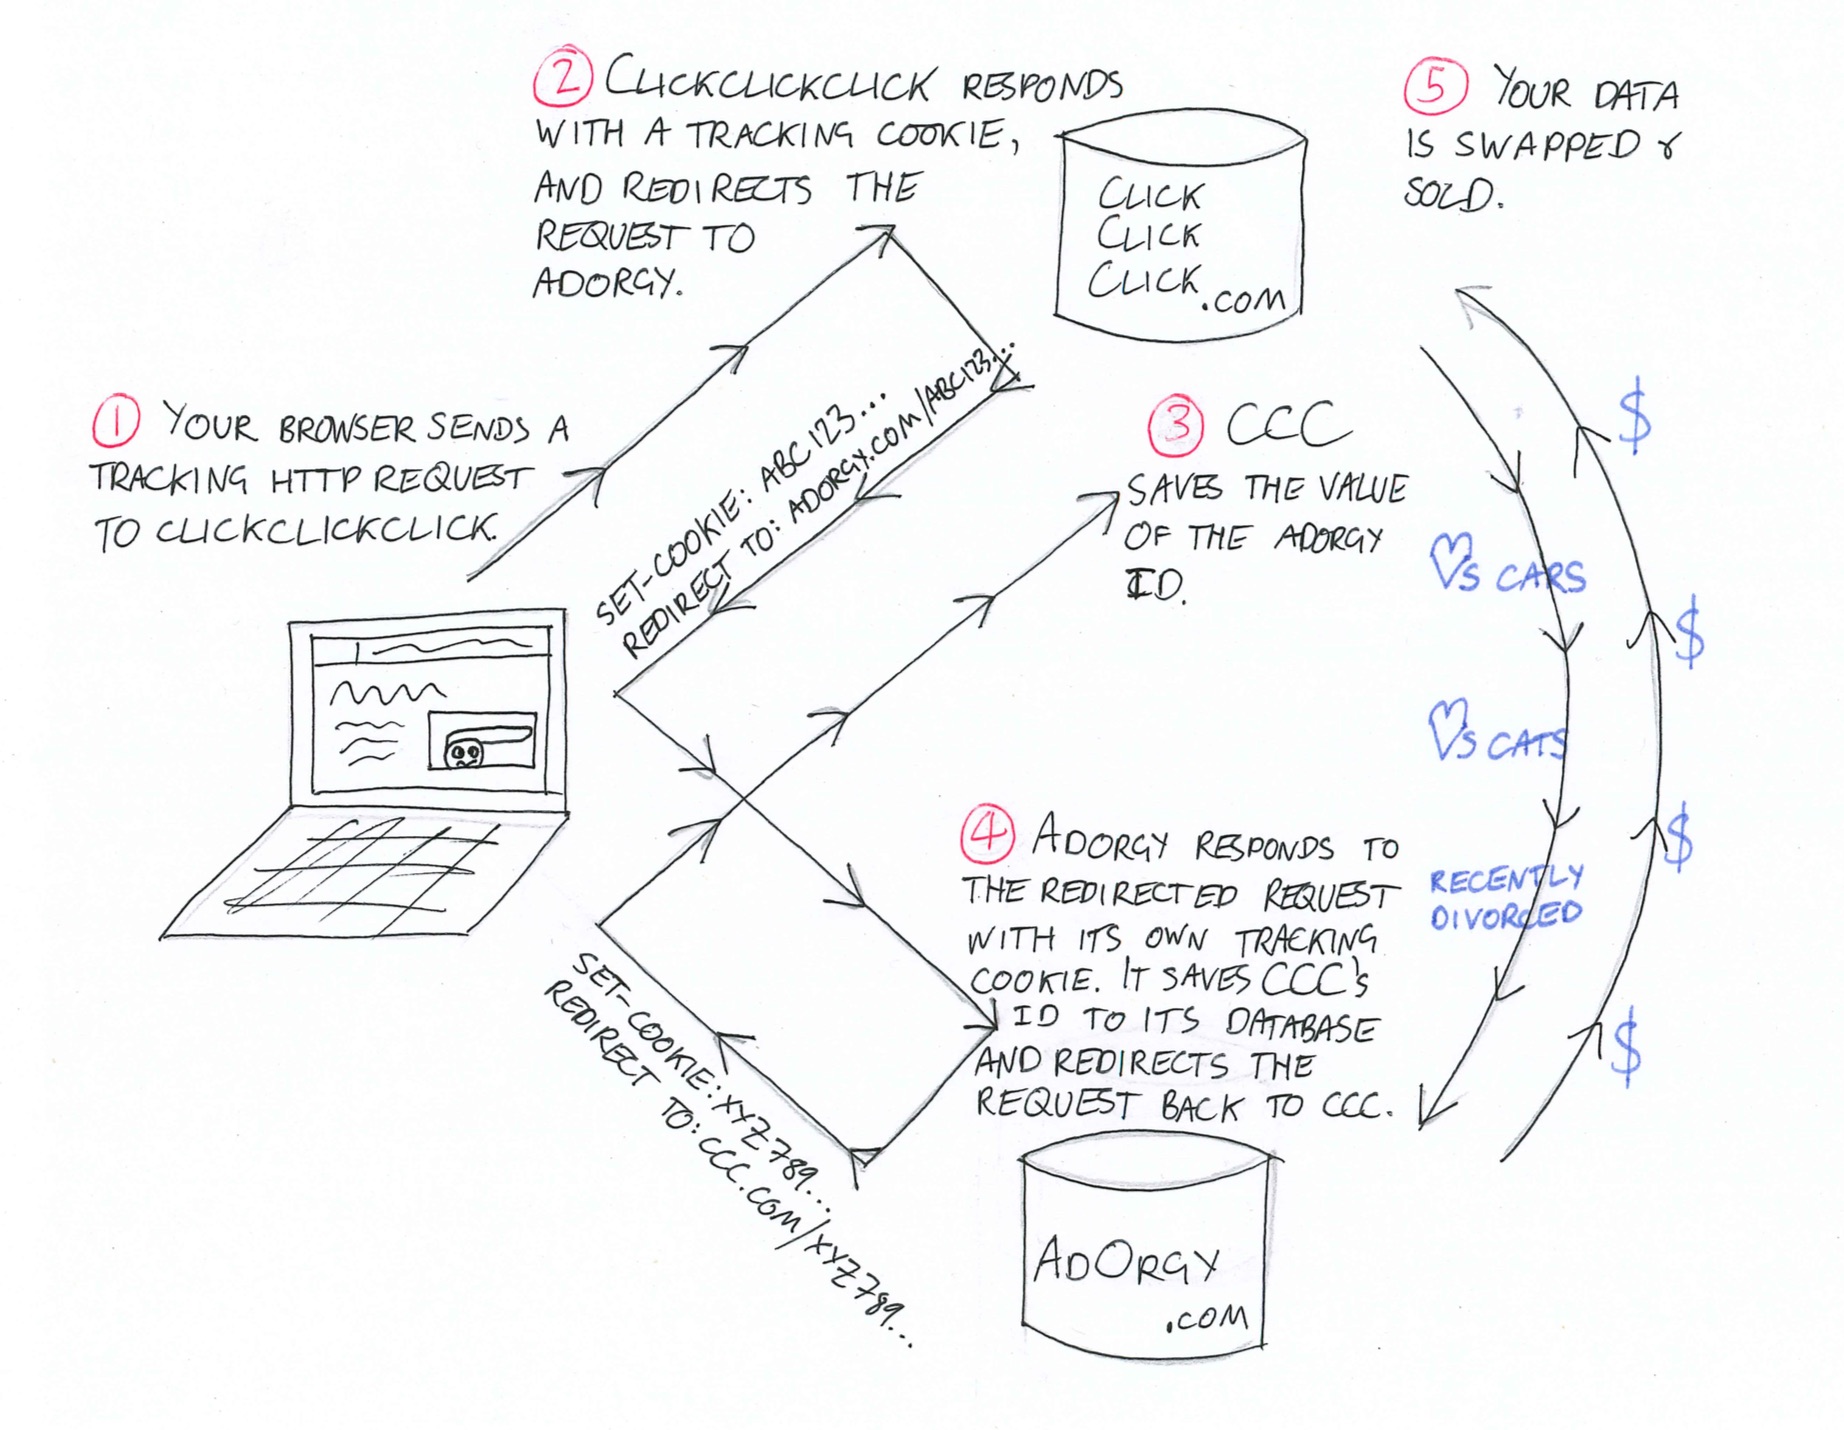 ① YOUR BROWSER SENDS A
TRACKING HTTP REQUEST
TO CLICKCLICKCLICK.
② CLICKCLICKCLICK RESPONDS
WITH A TRACKING COOKIE,
AND REDIRECTS THE
REQUEST TO
ADORGY.
CLICK
CLICK
CLICK
.COM
SET-COOKIE: ABC123...
REDIRECT TO: ADORGY.COM/ABC123...
③ CCC
SAVES THE VALUE
OF THE ADORGY
ID.
④ ADORGY RESPONDS TO
THE REDIRECTED REQUEST
WITH ITS OWN TRACKING
COOKIE. IT SAVES CCC's
ID TO ITS DATABASE
AND REDIRECTS THE
REQUEST BACK TO CCC.
SET-COOKIE: XYZ789...
REDIRECT TO: CCC.COM/XYZ789...
ADORGY
.COM
⑤ YOUR DATA
IS SWAPPED &
SOLD.
$
♡s CARS
$
♡s CATS
$
RECENTLY
DIVORCED
$